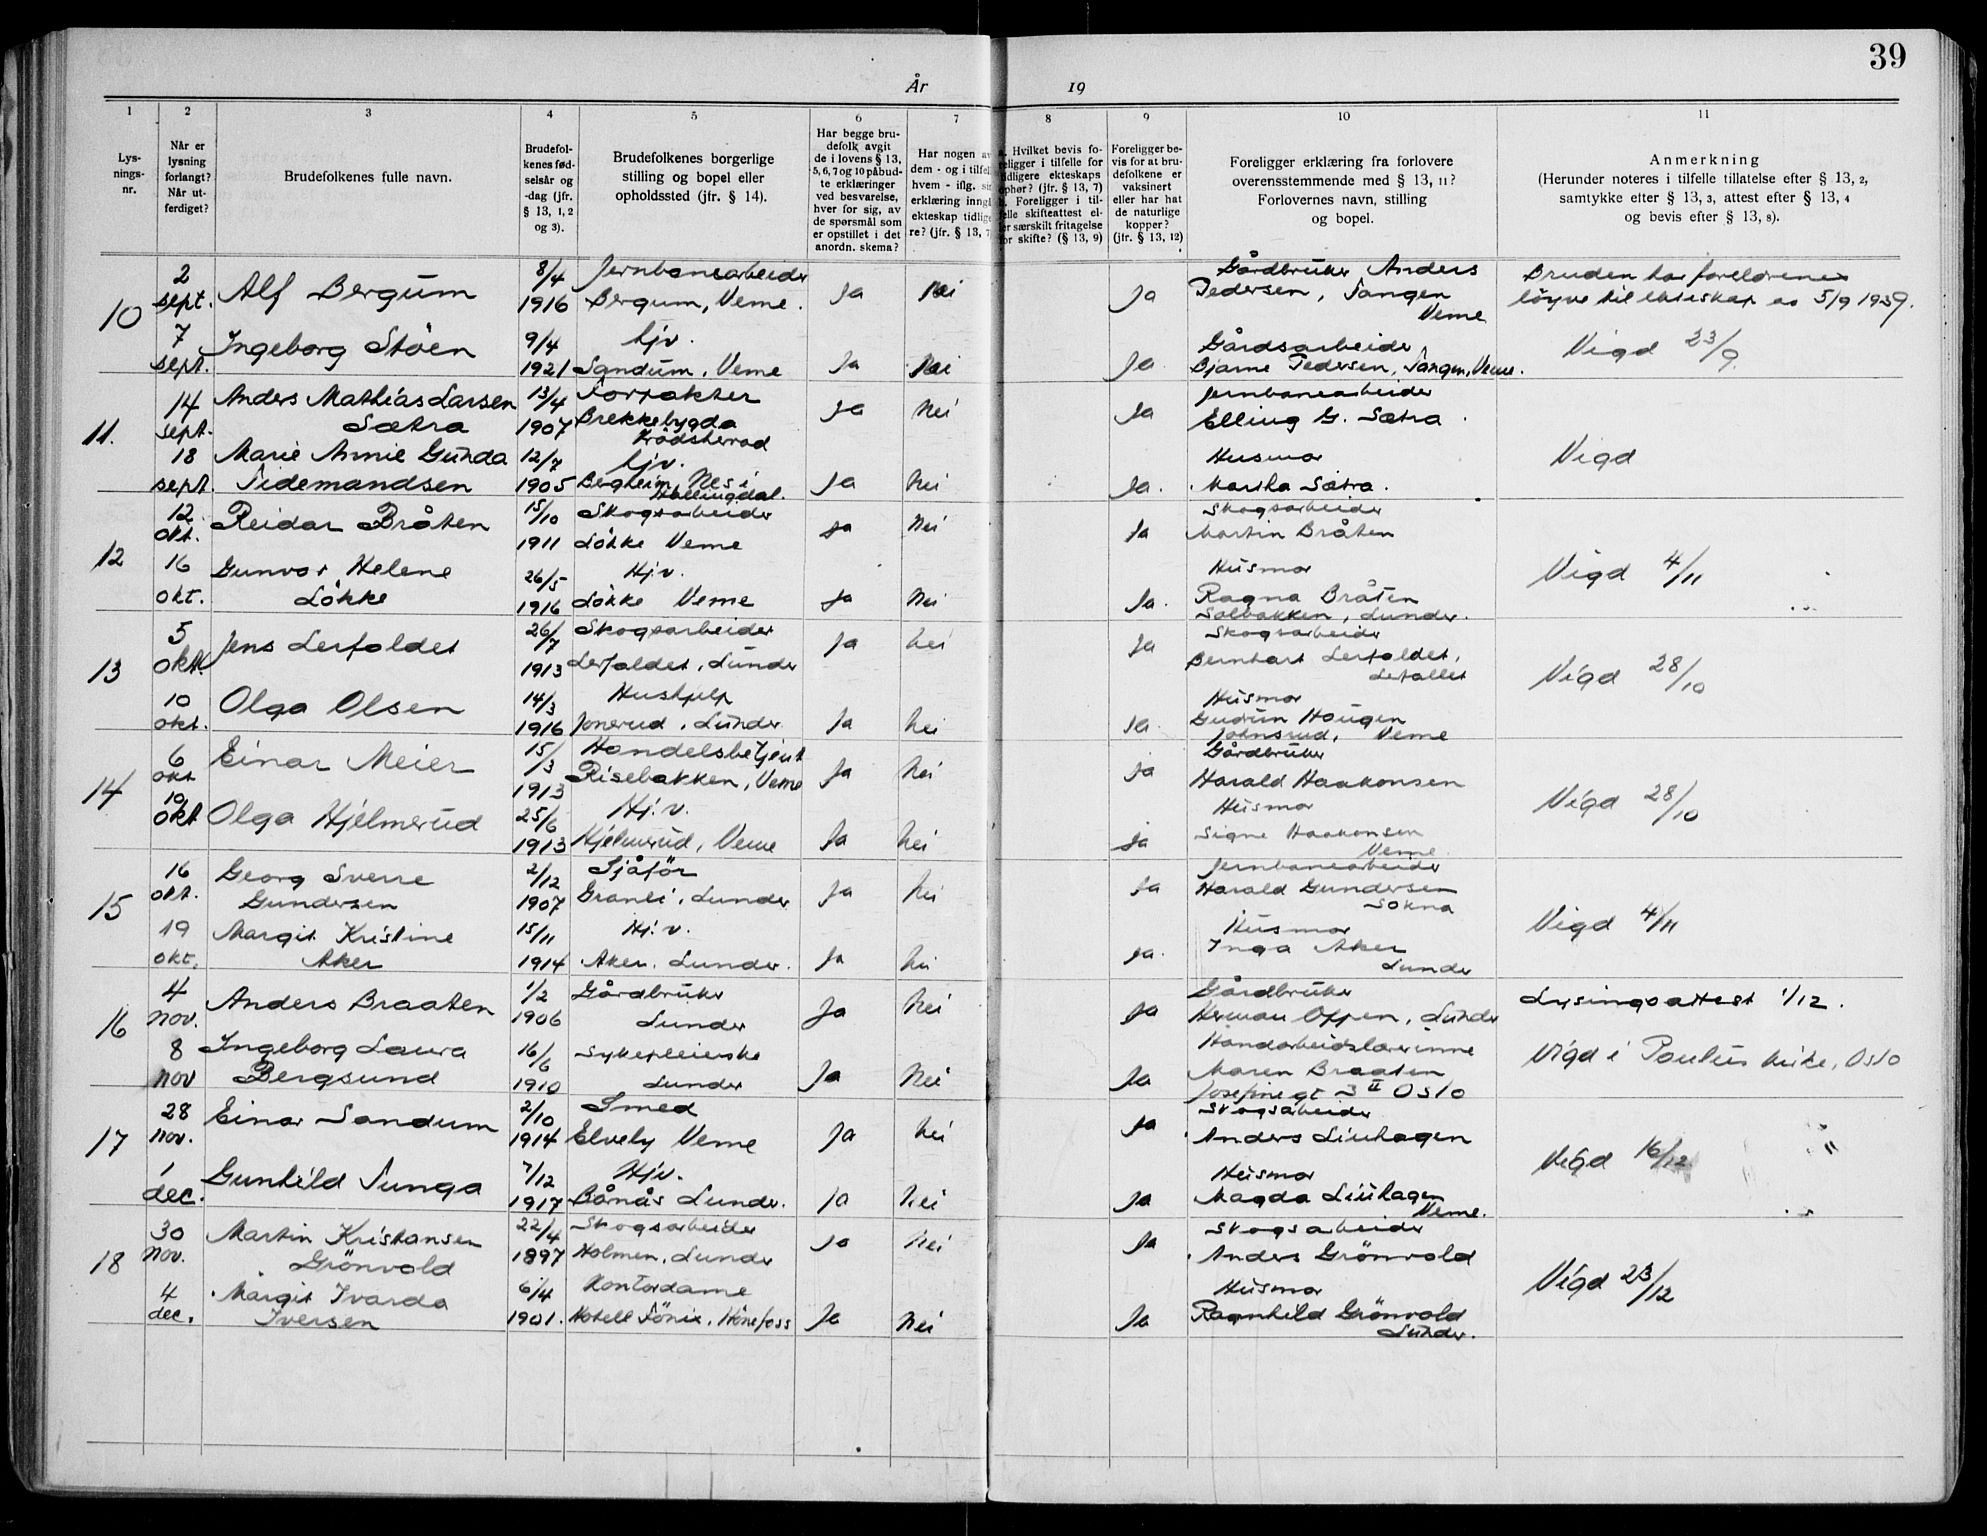 39
År 19
1 2 3 4 5 6 7 8 9 10 11
Lysnings-nr.
Når er lysning forlangt? Når utferdiget?
Brudefolkenes fulle navn.
Brudefolkenes fødselsår og -dag (jfr. § 13, 1, 2 og 3).
Brudefolkenes borgerlige stilling og bopel eller opholdssted (jfr. § 14).
Har begge brudefolk avgit de i lovens § 13, 5, 6, 7 og 10 påbudte erklæringer ved besvarelse, hver for sig, av de spørsmål som er opstillet i det anordn. skema?
Har nogen av dem - og i tilfelle hvem - iflg. sin erklæring inngå ekteskap tidligere? (jfr. § 13, 7)
a. Hvilket bevis foreligger i tilfelle for tidligere ekteskaps ophør? (jfr. § 13, 7) b. Foreligger i tilfelle skifteattest eller særskilt fritagelse for skifte? (§ 13, 9)
Foreligger bevis for at brudefolkene er vaksinert eller har hat de naturlige kopper? (jfr. § 13, 12)
Foreligger erklæring fra forlovere overensstemmende med § 13, 11? Forlovernes navn, stilling og bopel.
Anmerkning (Herunder noteres i tilfelle tillatelse efter § 13, 2, samtykke efter § 13, 3, attest efter § 13, 4 og bevis efter § 13, 8).
10 2 sept. Alf Bergum 8/4 1916 Jernbanearbeider Bergum, Veme. Ja Nei Ja Gårdbruker Anders Pedersen, Tangen Veme Bruden har foreldrenes løyve til ekteskap av 5/9 1939.
7 sept. Ingeborg Støen 9/4 1921 hjv. Sandum, Veme Ja Nei Ja. Gårdsarbeider Bjarne Pedersen, Tangen, Veme. Vigd 23/9.
11. 14 sept. Anders Mathias Larsen Sætra 13/4 1907 Forpakter Brekkebygda Krødsherrad Ja Nei Ja Jernbanearbeider Elling G. Sætra.
18 sept. Marie Annie Gunda Tidemandsen 12/7 1905 hjv. Bergheim, Nes i Hallingdal. Ja Nei Ja. Husmor Martha Sætra. Vigd
12 12 okt. Reidar Bråten 15/10 1911 Skogsarbeider Løkke Veme Ja Nei Ja Skogsarbeider Martin Bråten
16 okt. Gunvor Helene Løkke 26/5 1916 Hj.v. Løkke Veme Ja Nei Ja. Husmor Ragna Bråten Solbakken, Lunder. Vigd 4/11
13 5 okt. Jens Lerfaldet 26/7 1913 Skogsarbeider Lerfaldet, Lunder Ja Nei Ja Skogsarbeider Bernhart Lerfaldet, Lerfallet
10 okt. Olga Olsen 14/3 1916 Hushjelp Jonsrud, Lunder. Ja Nei Ja. Husmor Gudrun Haugen Johnsrud, Veme Vigd 28/10
14 6 okt Einar Meier 15/3 1913 Handelsbetjent Risebakken, Veme Ja Nei Ja Gårdbruker Harald Haakonsen
10 okt Olga Hjelmerud 25/6 1913 Hj.v. Hjelmerud, Veme Ja Nei Ja Husmor Signe Haakonsen Veme Vigd 28/10
15 16 okt. Georg Sverre Gundersen 2/12 1907 Sjåfør Granli, Lunder Ja Nei Ja Jernbanearbeider Harald Gundersen Sokna
19 okt. Margit Kristine Aker 15/11 1914 Hj.v. Aker, Lunder. Ja Nei Ja. Husmor Inga Aker Lunder Vigd 4/11
16 4 nov. Anders Braaten 1/2 1906 Gårdbruker Lunder Ja Nei Ja Gårdbruker Herman Oppen, Lunder Lysingsattest 1/12.
8 nov Ingeborg Laura Bergsund 16/6 1910 Sykepleierske Lunder Ja Nei Ja Handarbeidslærerinne Maren Braaten Josefinegt 3 II Oslo Vigd i Paulus kirke, Oslo
17 28 nov. Einar Sandum 2/10 1914 Smed Elvely Veme Ja Nei Ja Skogsarbeider Anders Liuhagen
1 dec. Gunhild Sunga 7/12 1917 Hjv. Bårnås Lunder. Ja Nei Ja Husmor Magda Liuhagen Veme. Vigd 16/12
18 30 nov. Martin Kristansen Grönvold 22/4 1897 Skogsarbeider Holmen, Lunder Ja Nei Ja Skogsarbeider Anders Grönvold
4 dec. Margit Ivarda Iversen 6/4 1901. Kontordame Hotell Fönix, Hönefoss Ja Nei Ja Husmor Ragnhild Grönvold Lunder. Vigd 23/12